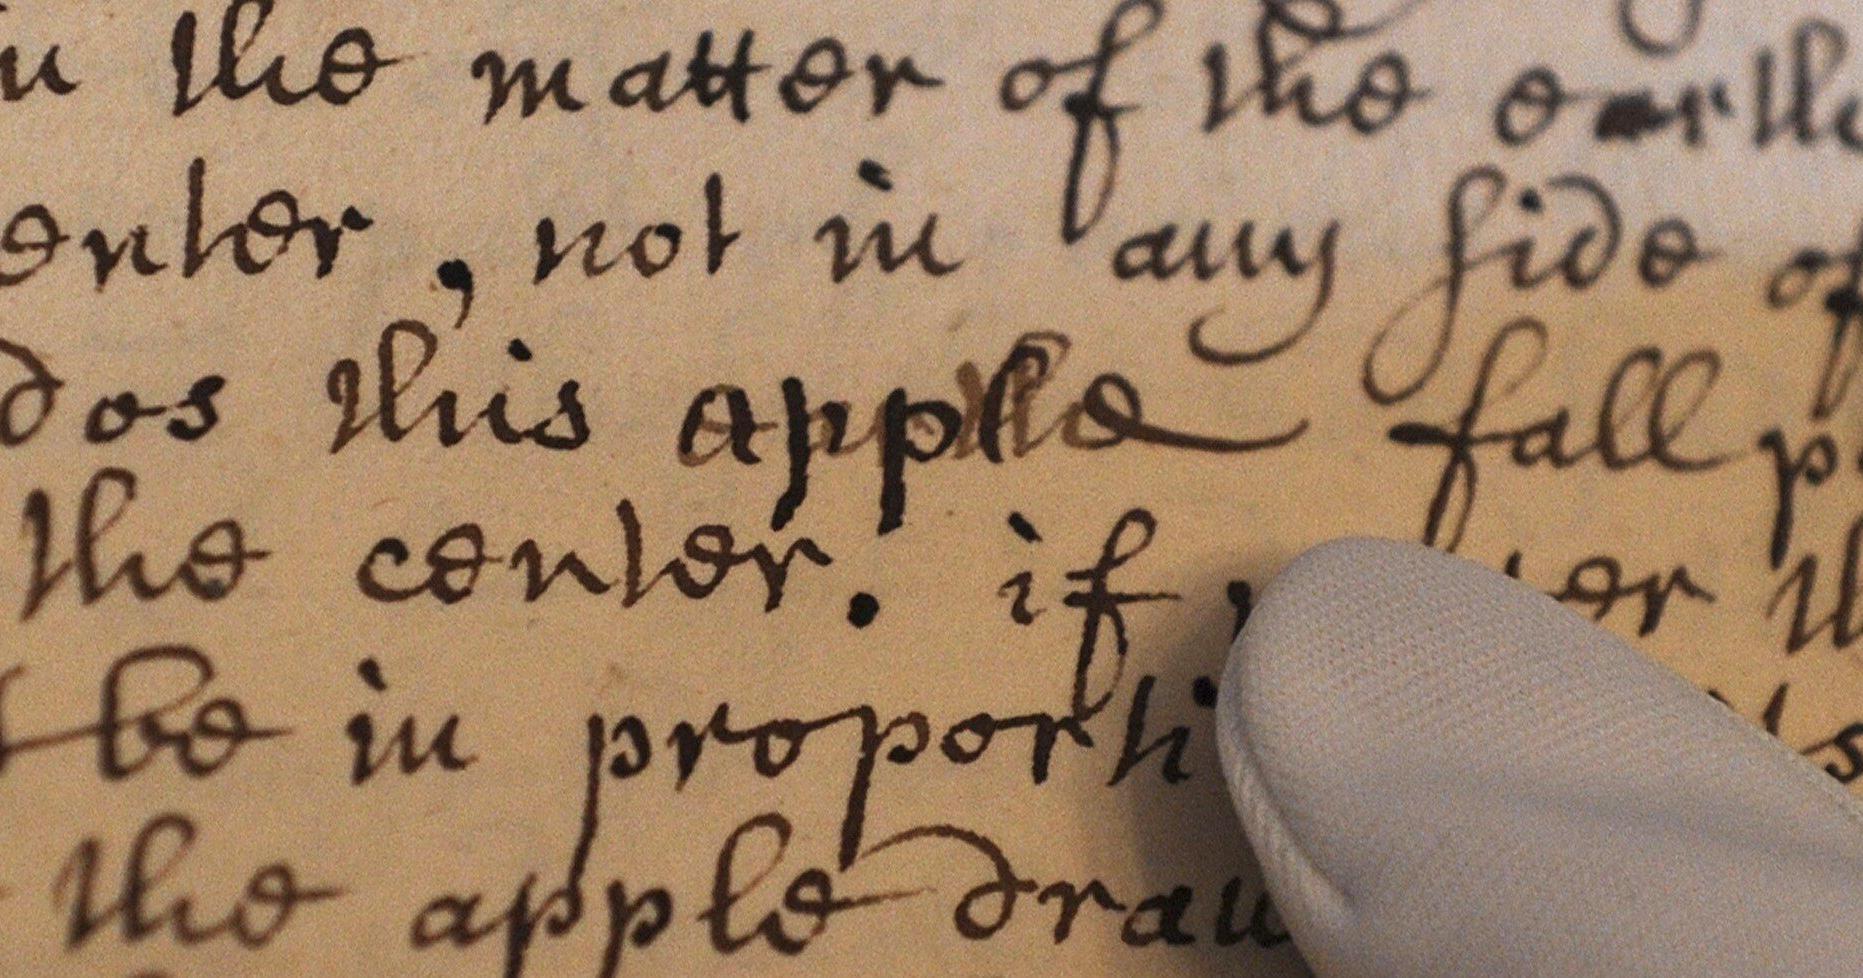 in the matter of the earth
enter, not in any side of
dos this apple fall p
the center. if
be in proporti
the apple draw